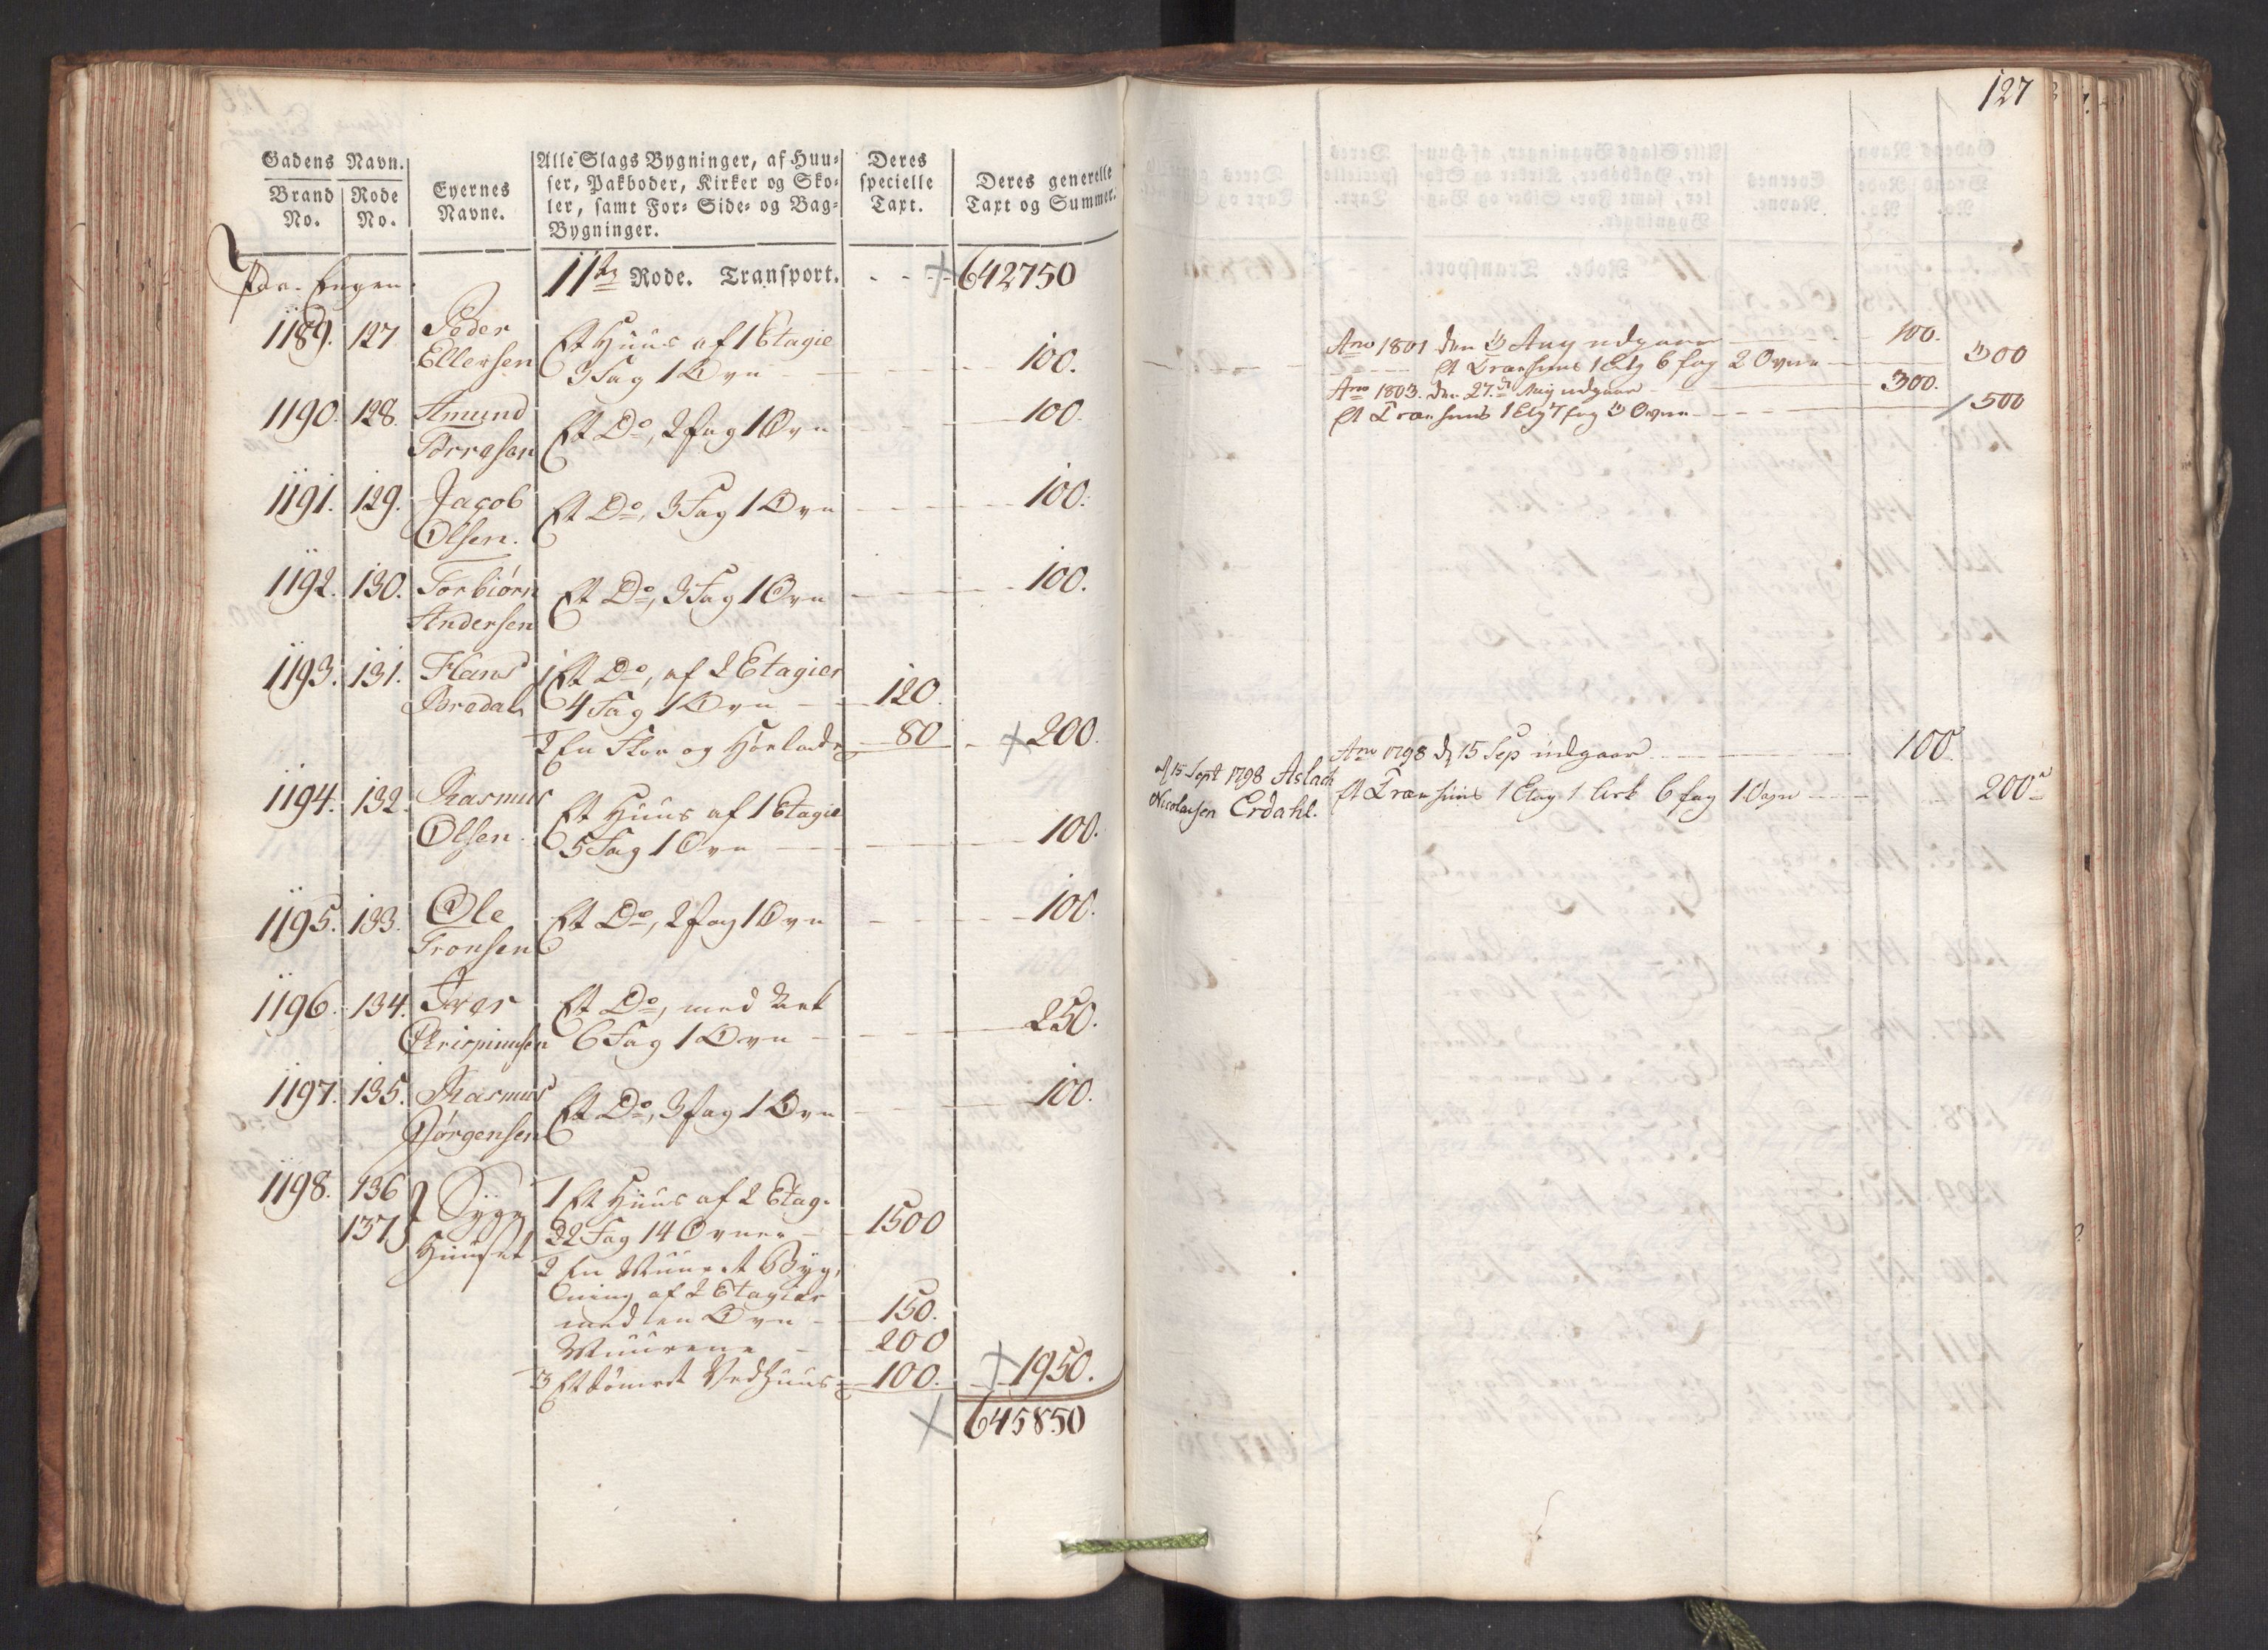 Gadens Navn.
Brand No.
Rode No.
Eyernes Navne.
Alle Slags Bygninger, af Huu-
ser, Pakboder, Kirker og Sko-
ler, samt For- Side- og Bag-
Bygninger.
Deres specielle Taxt.
Deres generelle Taxt og Summer.
Paa Engen. 11te Rode. Transport. 642750
1189. 127 Peder Et Huus af 1 Etagie
Ellersen 3 Fag 1 Ovn 100.
1190. 128. Amund
Torresen Et Do, 2 fag 1 Ovn 100.
1191. 129. Jacob Et Do, 3 Fag 1 Ovn 100.
Olsen.
1192. 130. Torbiørn Et Do, 3 Fag 1 Ovn 100.
Andersen
1193. 131. Hans 1 Et Do, af 2 Etagier
Bredal 4 Fag 1 Ovn 120.
2 En Floe og Høelade 80 200.
1194. 132. Rasmus Et Huus af 1 Etagie
Olsen 5 Fag 1 Ovn 100.
1195. 133. Ole Et Do, 2 fag 1 Ovn 100.
Tronsen
1196. 134. Iver Et Do, med Ark
Crispinusen 6 Fag 1 Ovn 250.
1197. 135. Rasmus Et Do, 3 fag 1 Ovn 100.
Jørgensen
1198. 136 Syge 1 Et Huus af 2 Etag.
137 Huuset 22 Fag 14 Ovner 1500
2 En Muuret Byg,
ning af 2 Etagier
med en Ovn 150.
Muurene 200
3 Et tømret Vedhuus 100. 1950.
645850
127
Ano 1801 den 3 Aug udgaar 100.
Et Træhuus 1 Etg 6 fag 2 Ovne 300
Ano 1803. den 27. Aug udgaar 300.
Et Træhuus 1 Etg 7 fag 3 Ovne 500
Ano 1798 d 15 Sep udgaar 100.
d 15 Sept 1798 Aslach
Nicolaysen Erdahl.
Et Træhuus 1 Etag 1 Ark 6 fag 1 Ovn 200